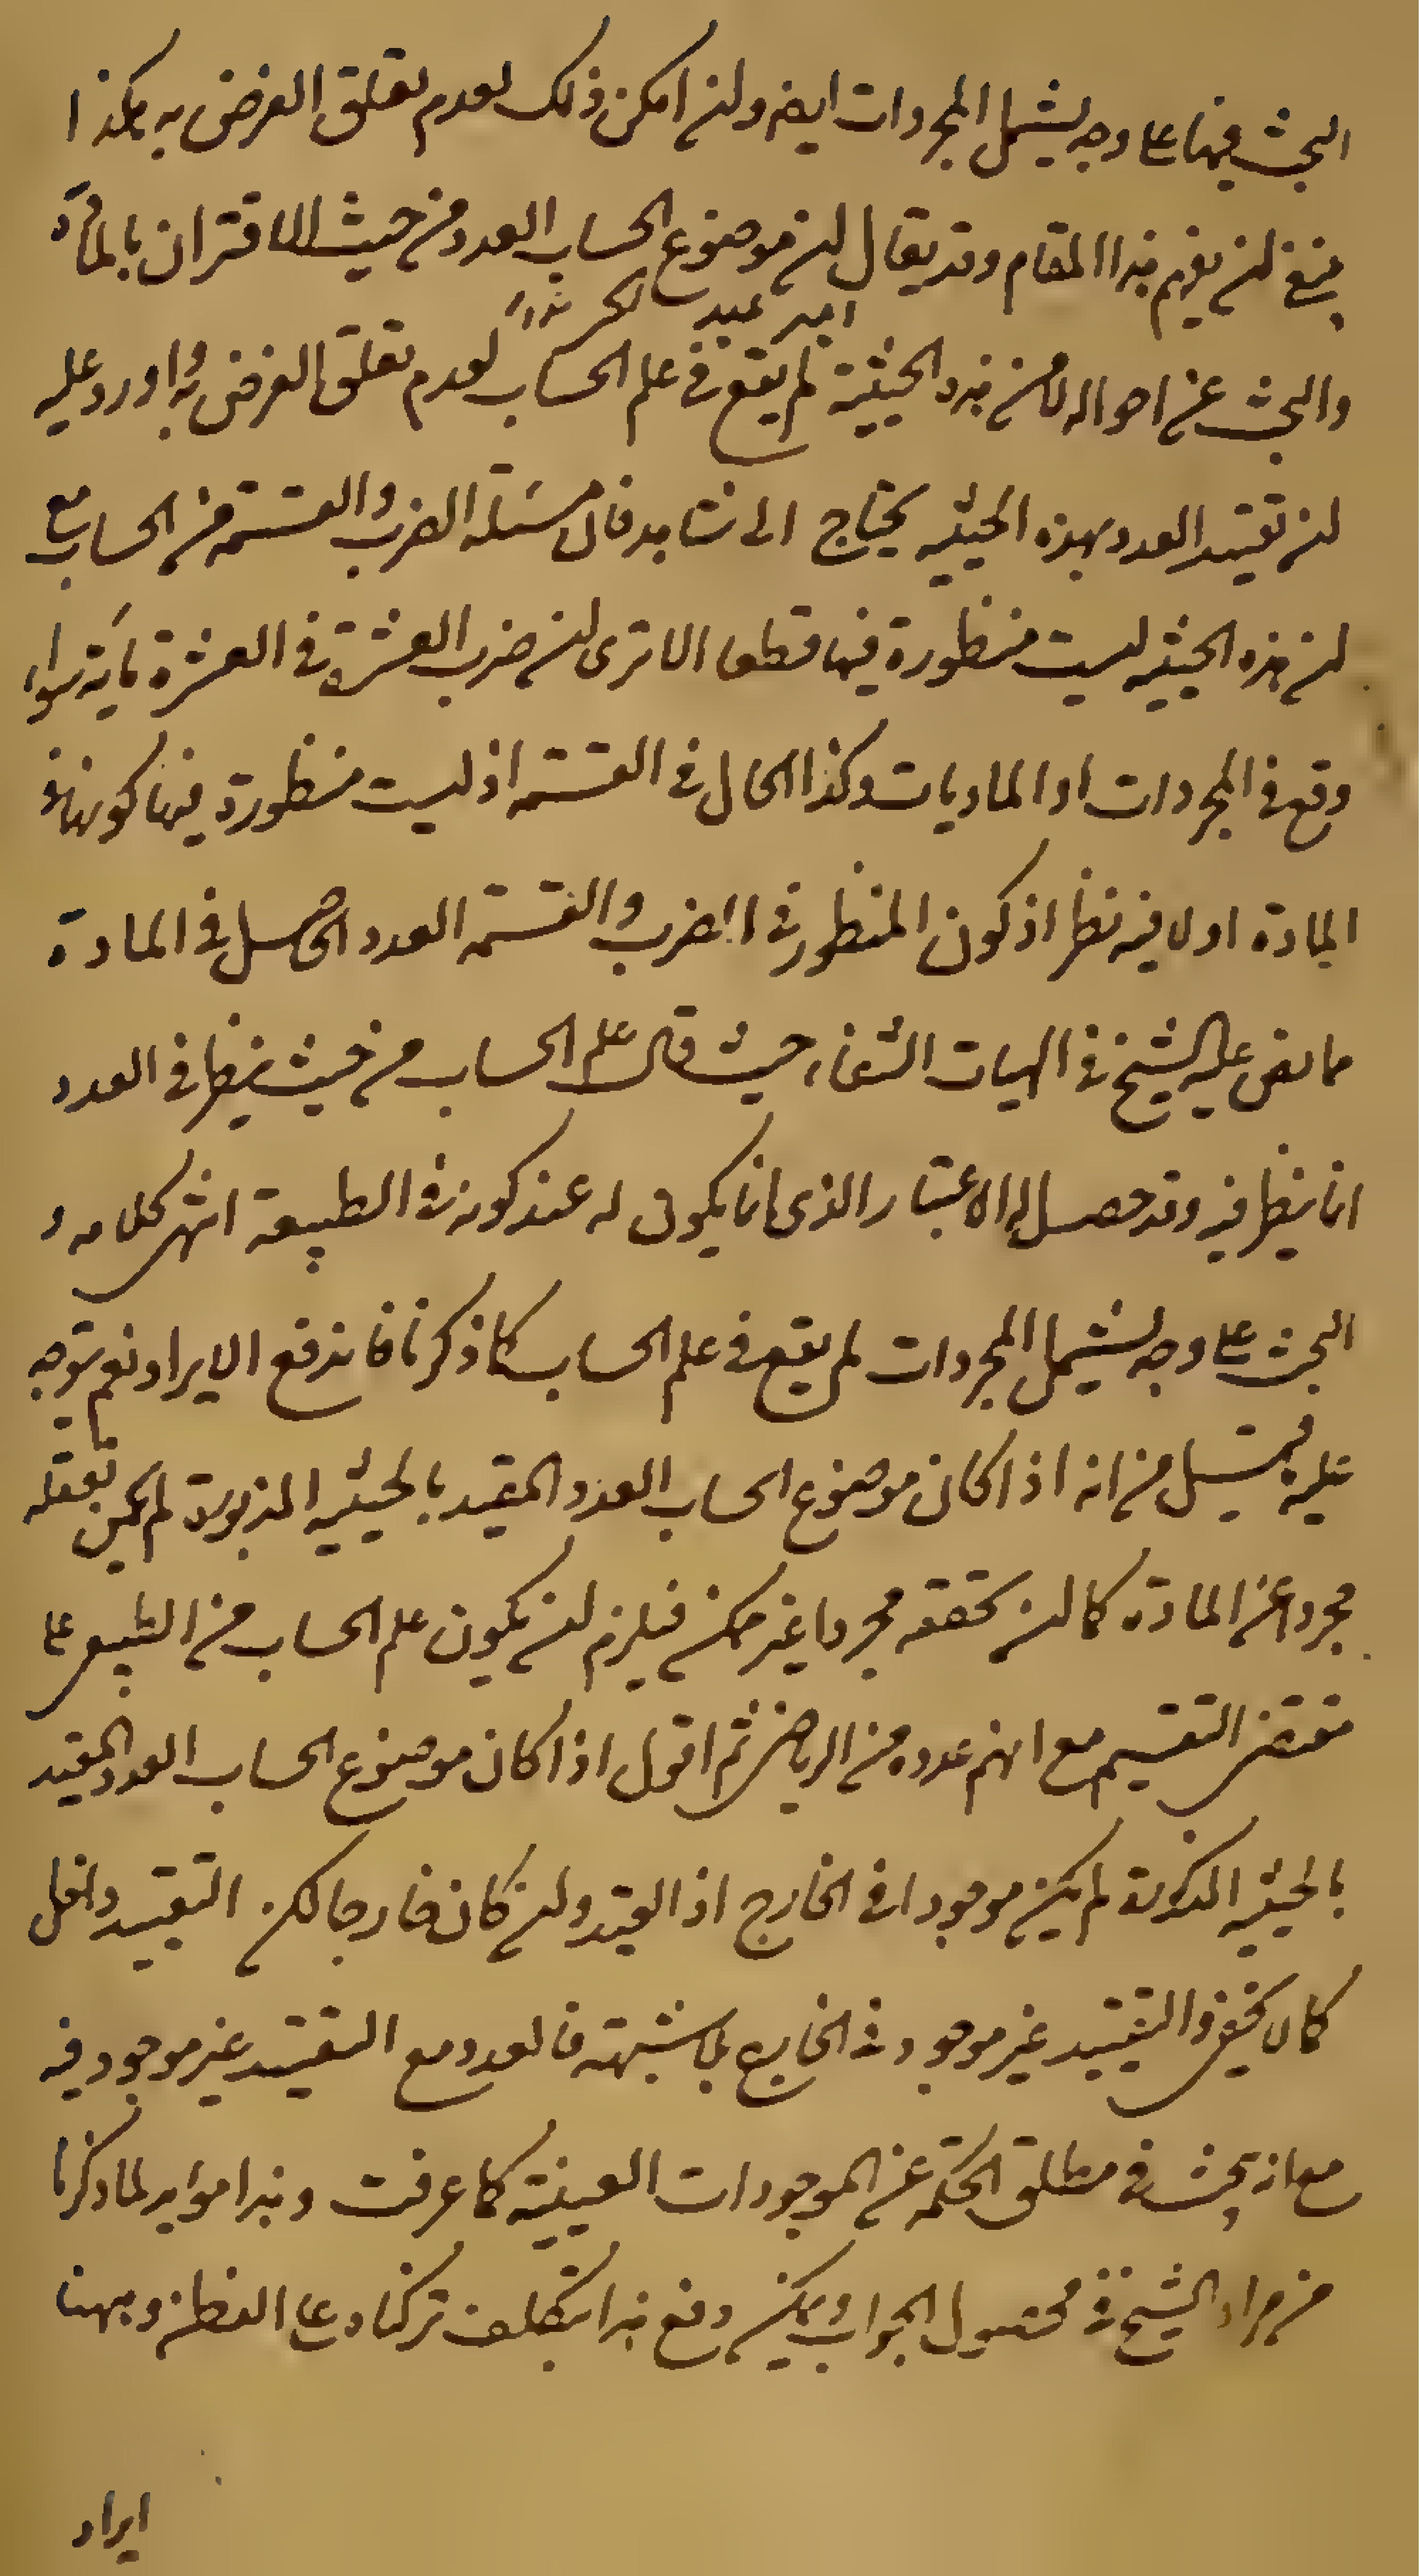 البحث فيها على وجه يشمل المجردات ايضا وان امكن ذلك لعدم تعلق الغرض به هكذا
ينبغي ان يفهم هذا المقام وقد يقال ان موضوع الحساب العدد من حيث الاقتران بالمادة
امير
والبحث عن احواله لا من هذه الحيثية لم يقع في علم الحساب لعدم تعلق الغرض به واورد عليه
ان تقييد العدد بهذه الحيثية يحتاج الى شاهد فان مسئلة الضرب والقسمة من الحساب مع
ان هذه الحيثية ليست منظورة فيها قطعا الا ترى ان ضرب العشرة في العشرة مائة سواء
وقع في المجردات او الماديات وكذا الحال في القسمة اذ ليست منظورة فيها كونها في
المادة او لا فيه نظر اذ كون المنظور في الضرب والقسمة العدد الحاصل في المادة
مما نص عليه الشيخ في الهيات الشفاء حيث قال علم الحساب من حيث ينظر في العدد
انما ينظر فيه وقد حصل له الاعتبار الذي انما يكون له عند كونه في الطبيعة انتهى كلامه و
البحث على وجه يشمل المجردات لم يقع في علم الحساب كما ذكرنا فاندفع الايراد نعم يتوجه
عليه ما قيل من انه اذا كان موضوع الحساب العدد المقيد بالحيثية المذبورة لم يمكن تعقله
مجردا عن المادة كما ان تحققه مجردا غير ممكن فيلزم ان يكون علم الحساب من الطبيعي على
مقتضى التقسيم مع انهم عدوه من الرياضي ثم اقول اذا كان موضوع الحساب العدد المقيد
بالحيثية المذكورة لم يكن موجودا في الخارج اذ القيد وان كان خارجا لكن التقييد داخل
كما لا يخفى والتقييد غير موجود في الخارج بلا شبهة فالعدد مع التقييد غير موجود فيه
مع انه يبحث في مطلق الحكمة عن الموجودات العينية كما عرفت وهذا مؤيد لما ذكرنا
من مراد الشيخ في محصول الجواب ويمكن دفع هذا بتكلف تركناه على الفطن وههنا
ايراد